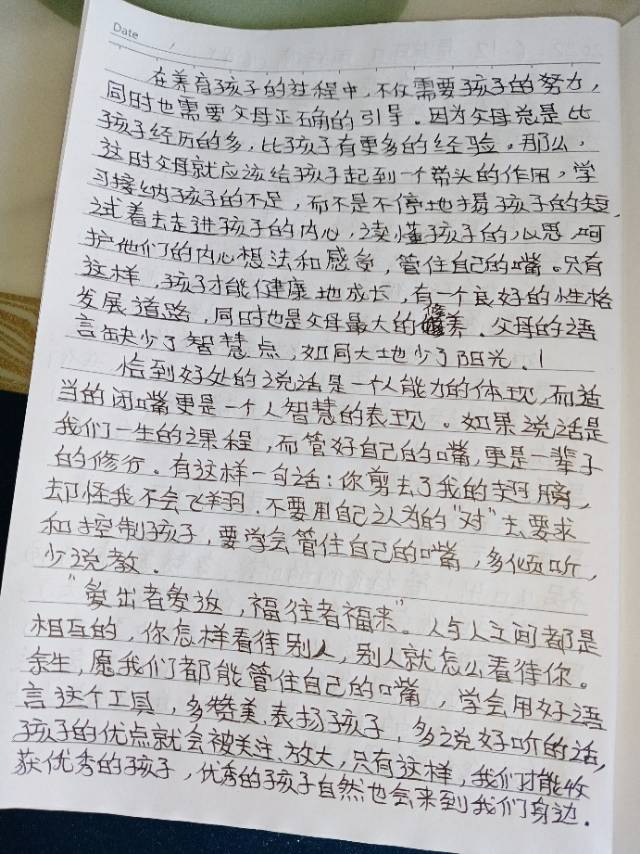 Date /
在养育孩子的过程中，不仅需要孩子的努力，
同时也需要父母正确的引导。因为父母总是比
孩子经历的多，比孩子有更多的经验。那么，
这时父母就应该给孩子起到一个带头的作用，学
习接纳孩子的不足，而不是不停地揭孩子的短，
试着去走进孩子的内心，读懂孩子的心思，呵
护他们的内心想法和感觉，管住自己的嘴。只有
这样，孩子才能健康地成长，有一个良好的性格
发展道路，同时也是父母最大的修养。父母的语
言缺少了智慧点，如同大地少了阳光。！
恰到好处的说话是一个人能力的体现，而适
当的闭嘴更是一个人智慧的表现。如果说话是
我们一生的课程，而管好自己的嘴，更是一辈子
的修行。有这样一句话：你剪去了我的翅膀，
却怪我不会飞翔。不要用自己认为的“对”去要求
和控制孩子，要学会管住自己的嘴，多倾听，
少说教。
“爱出者爱返，福往者福来”。人与人之间都是
相互的，你怎样看待别人，别人就怎么看待你。
余生，愿我们都能管住自己的嘴，学会用好语
言这个工具，多赞美、表扬孩子，多说好听的话，
孩子的优点就会被关注、放大，只有这样，我们才能收
获优秀的孩子，优秀的孩子自然也会来到我们身边。